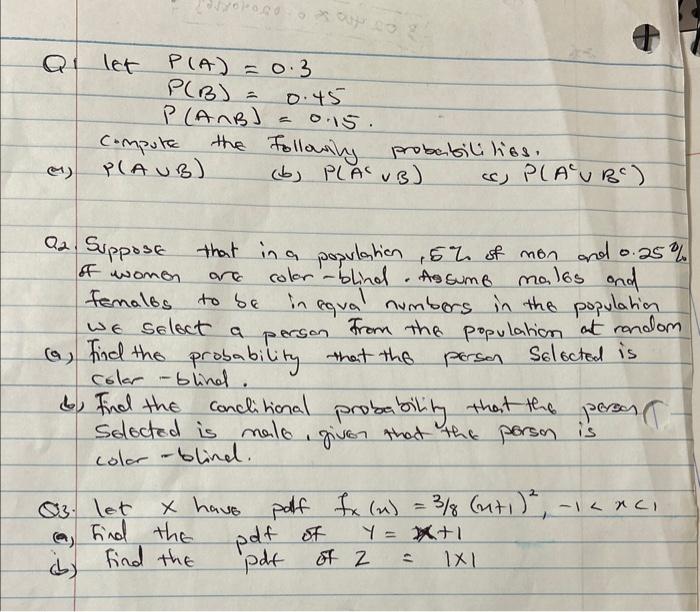 Q1 let P(A) = 0.3
P(B) = 0.45
P(A∩B) = 0.15.
Compute the following probabilities.
(a) P(A∪B) (b) P(Aᶜ∪B) (c) P(Aᶜ∪Bᶜ)
Q2. Suppose that in a population, 5% of men and 0.25%
of women are color-blind. Assume males and
females to be in equal numbers in the population
We select a person from the population at random
(a) Find the probability that the person selected is
color-blind.
(b) Find the conditional probability that the person
selected is male, given that the person is
color-blind.
Q3. let X have pdf fₓ(x) = 3/8 (x+1)², -1 < x < 1
(a) Find the pdf of Y = X+1
(b) Find the pdf of Z = |X|